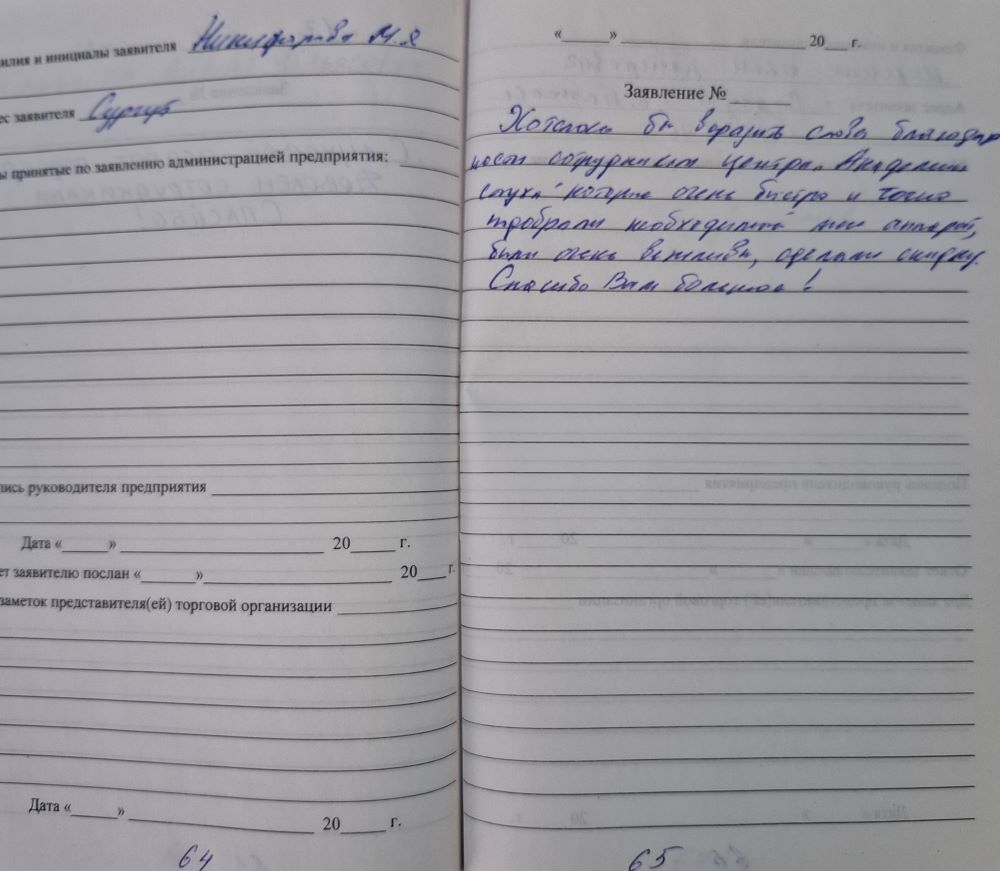 илия и инициалы заявителя Никифорова М.Я
ес заявителя Сургут
ы принятые по заявлению администрацией предприятия:
пись руководителя предприятия
Дата «____» ____ 20____ г.
ет заявителю послан «____» ____ 20____ г.
заметок представителя(ей) торговой организации
Дата «____» ____ 20____ г.
64
«____» ____ 20____ г.
Заявление № ____
Хотелось бы выразить слова благодар
ности сотрудникам центра „Академия
слуха" которые очень быстро и
подобрали необходимый мне аппарат,
были очень вежливы, сделали скидку.
Спасибо Вам большое!
65